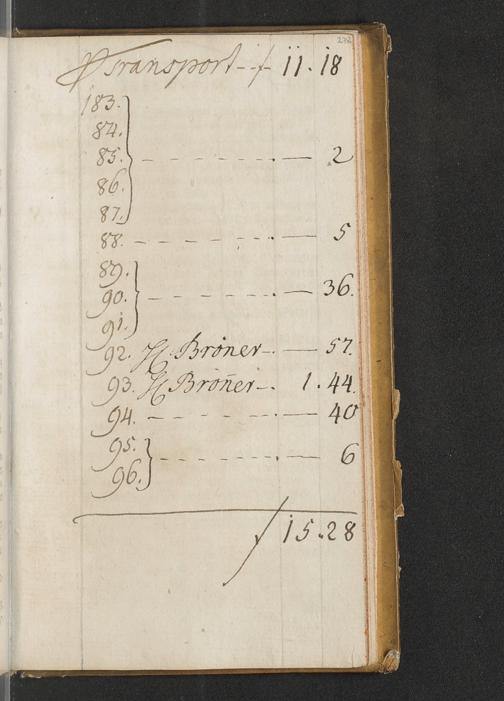 Transport - f 11. 18
183.
84.
85. - - - - . — 2
86.
87.
88. - - - - - . — 5
89.
90. - - - - . — 36.
91.
92. H. Bröner - . — 57.
93. H Bröner - . 1. 44.
94. - - - - - . — 40
95.
96. - - - - . — 6
f 15. 28